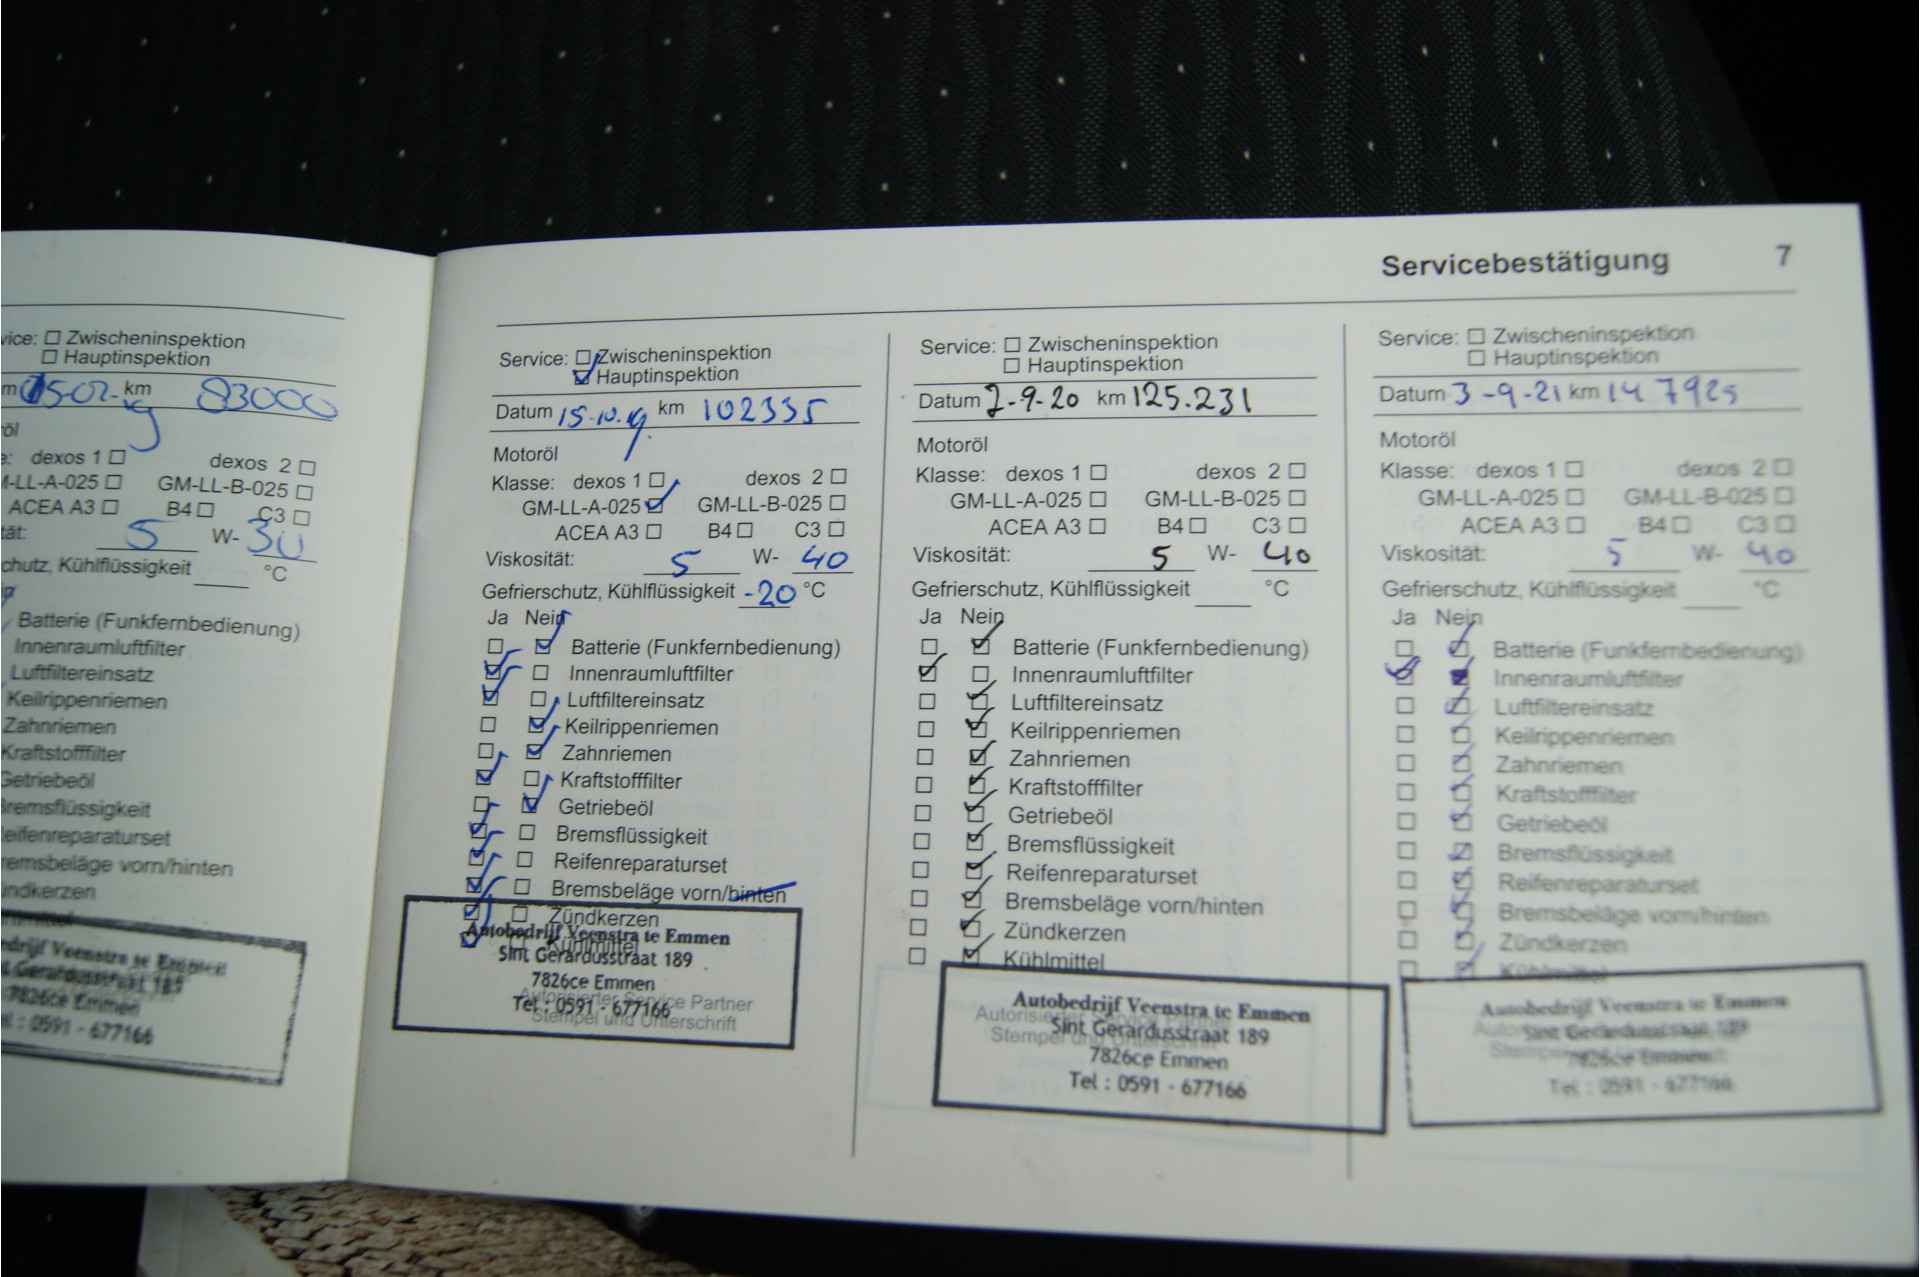 Servicebestätigung 7
vice: Zwischeninspektion
Hauptinspektion
m 05-02- km 83000
19
öl
e: dexos 1 dexos 2
M-LL-A-025 GM-LL-B-025
ACEA A3 B4 C3
tät: 5 W- 30
chutz, Kühlflüssigkeit °C
Batterie (Funkfernbedienung)
Innenraumluftfilter
Luftfiltereinsatz
Keilrippenriemen
Zahnriemen
Kraftstofffilter
Getriebeöl
Bremsflüssigkeit
Reifenreparaturset
remsbeläge vorn/hinten
ündkerzen
edrijf Veenstra te Emmen
t Gerardusstraat 189
7826ce Emmen
el : 0591 - 677166
Service: Zwischeninspektion
Hauptinspektion
Datum 15-10-19 km 102335
Motoröl
Klasse: dexos 1 dexos 2
GM-LL-A-025 GM-LL-B-025
ACEA A3 B4 C3
Viskosität: 5 W- 40
Gefrierschutz, Kühlflüssigkeit -20 °C
Ja Nein
Batterie (Funkfernbedienung)
Innenraumluftfilter
Luftfiltereinsatz
Keilrippenriemen
Zahnriemen
Kraftstofffilter
Getriebeöl
Bremsflüssigkeit
Reifenreparaturset
Bremsbeläge vorn/hinten
Zündkerzen
Kühlmittel
Autobedrijf Veenstra te Emmen
Sint Gerardusstraat 189
7826ce Emmen
Autorisierter Service Partner
Tel : 0591 - 677166
Stempel und Unterschrift
Service: Zwischeninspektion
Hauptinspektion
Datum 2-9-20 km 125.231
Motoröl
Klasse: dexos 1 dexos 2
GM-LL-A-025 GM-LL-B-025
ACEA A3 B4 C3
Viskosität: 5 W- 40
Gefrierschutz, Kühlflüssigkeit °C
Ja Nein
Batterie (Funkfernbedienung)
Innenraumluftfilter
Luftfiltereinsatz
Keilrippenriemen
Zahnriemen
Kraftstofffilter
Getriebeöl
Bremsflüssigkeit
Reifenreparaturset
Bremsbeläge vorn/hinten
Zündkerzen
Kühlmittel
Autobedrijf Veenstra te Emmen
Autorisierter
Sint Gerardusstraat 189
Stempel und
7826ce Emmen
Tel : 0591 - 677166
Service: Zwischeninspektion
Hauptinspektion
Datum 3-9-21 km 147925
Motoröl
Klasse: dexos 1 dexos 2
GM-LL-A-025 GM-LL-B-025
ACEA A3 B4 C3
Viskosität: 5 W- 40
Gefrierschutz, Kühlflüssigkeit °C
Ja Nein
Batterie (Funkfernbedienung)
Innenraumluftfilter
Luftfiltereinsatz
Keilrippenriemen
Zahnriemen
Kraftstofffilter
Getriebeöl
Bremsflüssigkeit
Reifenreparaturset
Bremsbeläge vorn/hinten
Zündkerzen
Kühlmittel
Autobedrijf Veenstra te Emmen
Sint Gerardusstraat 189
7826ce Emmen
Tel : 0591 - 677166